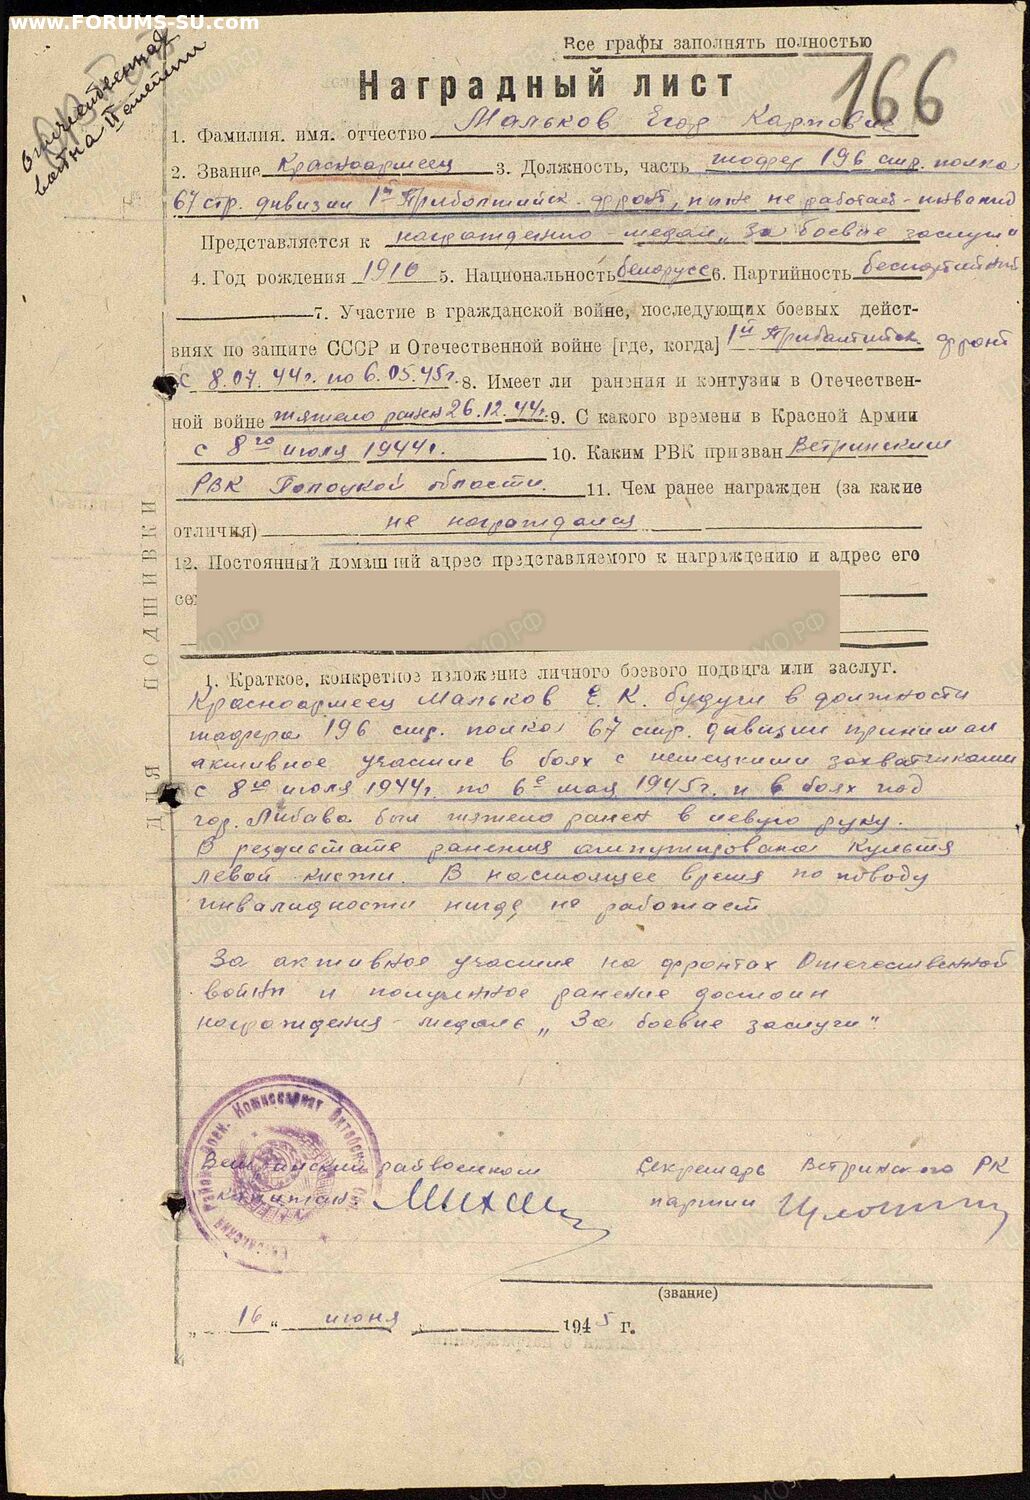 www.FORUMS-SU.com
Отечественная
война II степени
Все графы заполнять полностью
166
Наградный лист
1. Фамилия. имя. отчество Мальков Егор Карпович
2. Звание Красноармеец 3. Должность, часть шофер 196 стр. полка
67 стр. дивизии 1й Прибалтийск. фронт, ныне не работает - инвалид
Представляется к награждению - медали „За боевые заслуги"
4. Год рождения 1910 5. Национальность белорусс 6. Партийность беспартийный
7. Участие в гражданской войне, последующих боевых дейст-
виях по защите СССР и Отечественной войне [где, когда] 1й Прибалтийск. фронт
с 8.07.44г. по 6.05.45г. 8. Имеет ли ранения и контузии в Отечествен-
ной войне тяжело ранен 26.12.44г. 9. С какого времени в Красной Армии
с 8го июля 1944г. 10. Каким РВК призван Ветринским
РВК Полоцкой области. 11. Чем ранее награжден (за какие
отличия) не награждался
12. Постоянный домашний адрес представляемого к награждению и адрес его
се
ДЛЯ ПОДШИВКИ
1. Краткое, конкретное изложение личного боевого подвига или заслуг.
Красноармеец Мальков Е. К. будучи в должности
шофера 196 стр. полка 67 стр. дивизии принимал
активное участие в боях с немецкими захватчиками
с 8го июля 1944г. по 6е мая 1945г. и в боях под
гор. Либава был тяжело ранен в левую руку.
В результате ранения ампутирована культя
левой кисти. В настоящее время по поводу
инвалидности нигде не работает
За активное участие на фронтах Отечественной
войны и полученное ранение достоин
награждения - медаль „За боевые заслуги".
Ветринский райвоенком Секретарь Ветринского РК
капитан партии
(звание)
„ 16 " июня 1945 г.